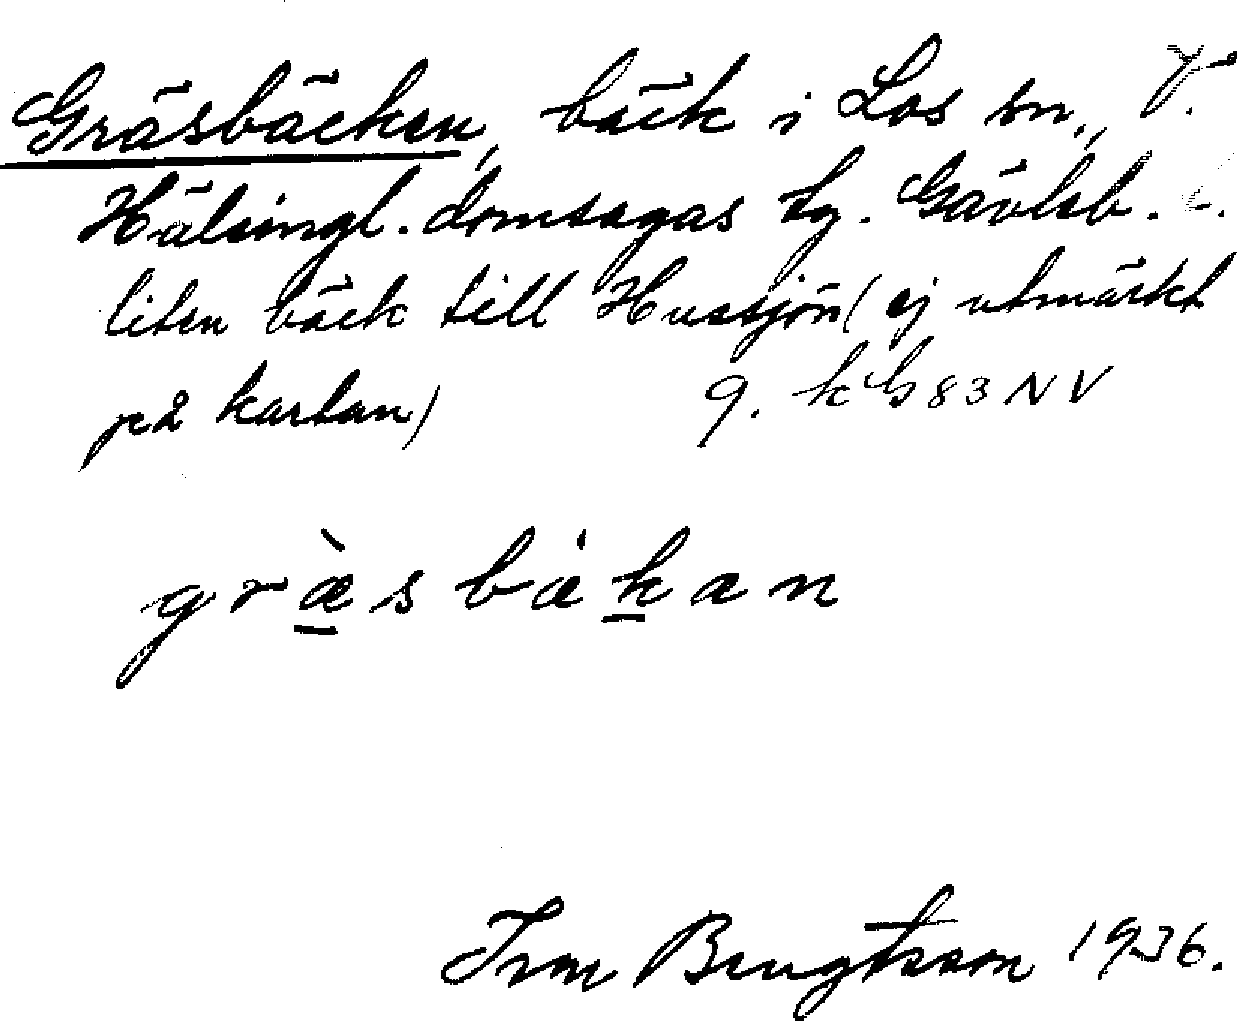 Gräsbäcken, bäck i Los sn., V.
Hälsingl. domsagas tg. Gävleb. l.
liten bäck till Hussjön (ej utmärkt
på kartan) 9. kbl 83 NV
græ̀sbàkan
Bengtsson 1936.